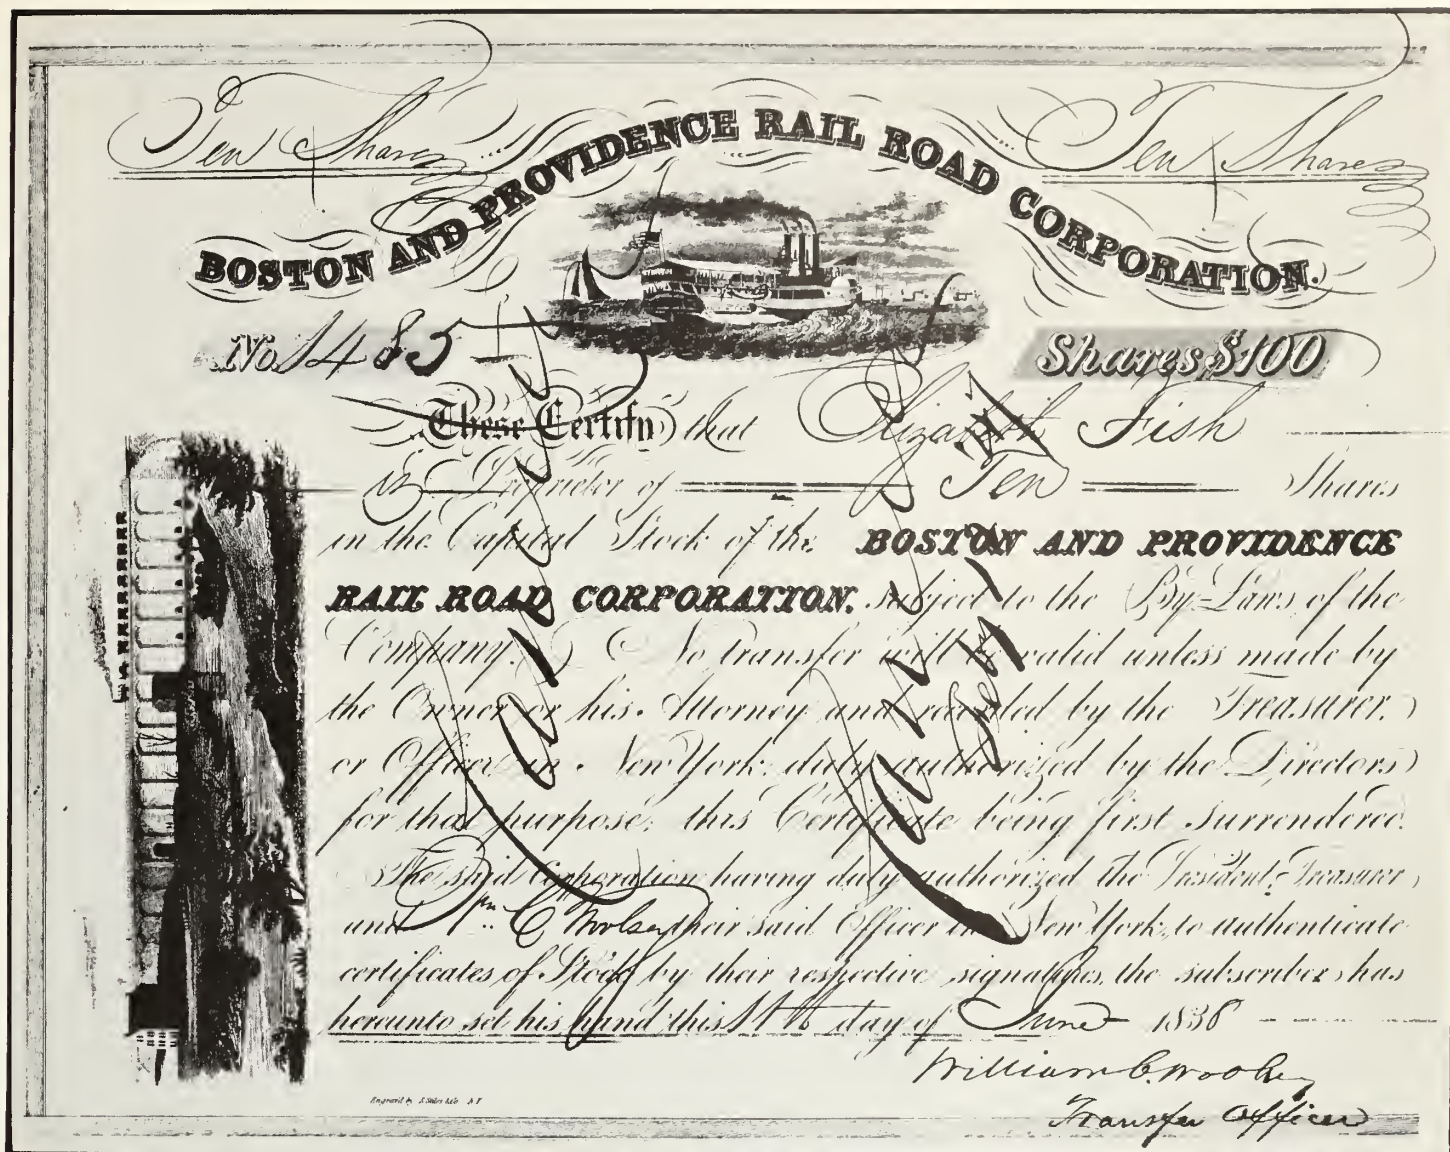 Ten Shares
Ten Shares
BOSTON AND PROVIDENCE RAIL ROAD CORPORATION.
No. 1485
Shares $100
These Certify that Elizabeth Fish
is Proprietor of Ten Shares
in the Capital Stock of the BOSTON AND PROVIDENCE
RAIL ROAD CORPORATION. subject to the By-Laws of the
Company. No transfer will be valid unless made by
the Owner or his Attorney and recorded by the Treasurer.
or Officer in New York, duly authorized by the Directors
for that purpose; this Certificate being first surrendered.
The said Corporation having duly authorized the President, Treasurer,
and Wm. C. Woolsey their said Officer in New York, to authenticate
certificates of Stock by their respective signatures, the subscriber has
hereunto set his hand this 11th day of June 1838
William C. Woolsey
Transfer Officer
Engraved by N.Y.
Cancelled